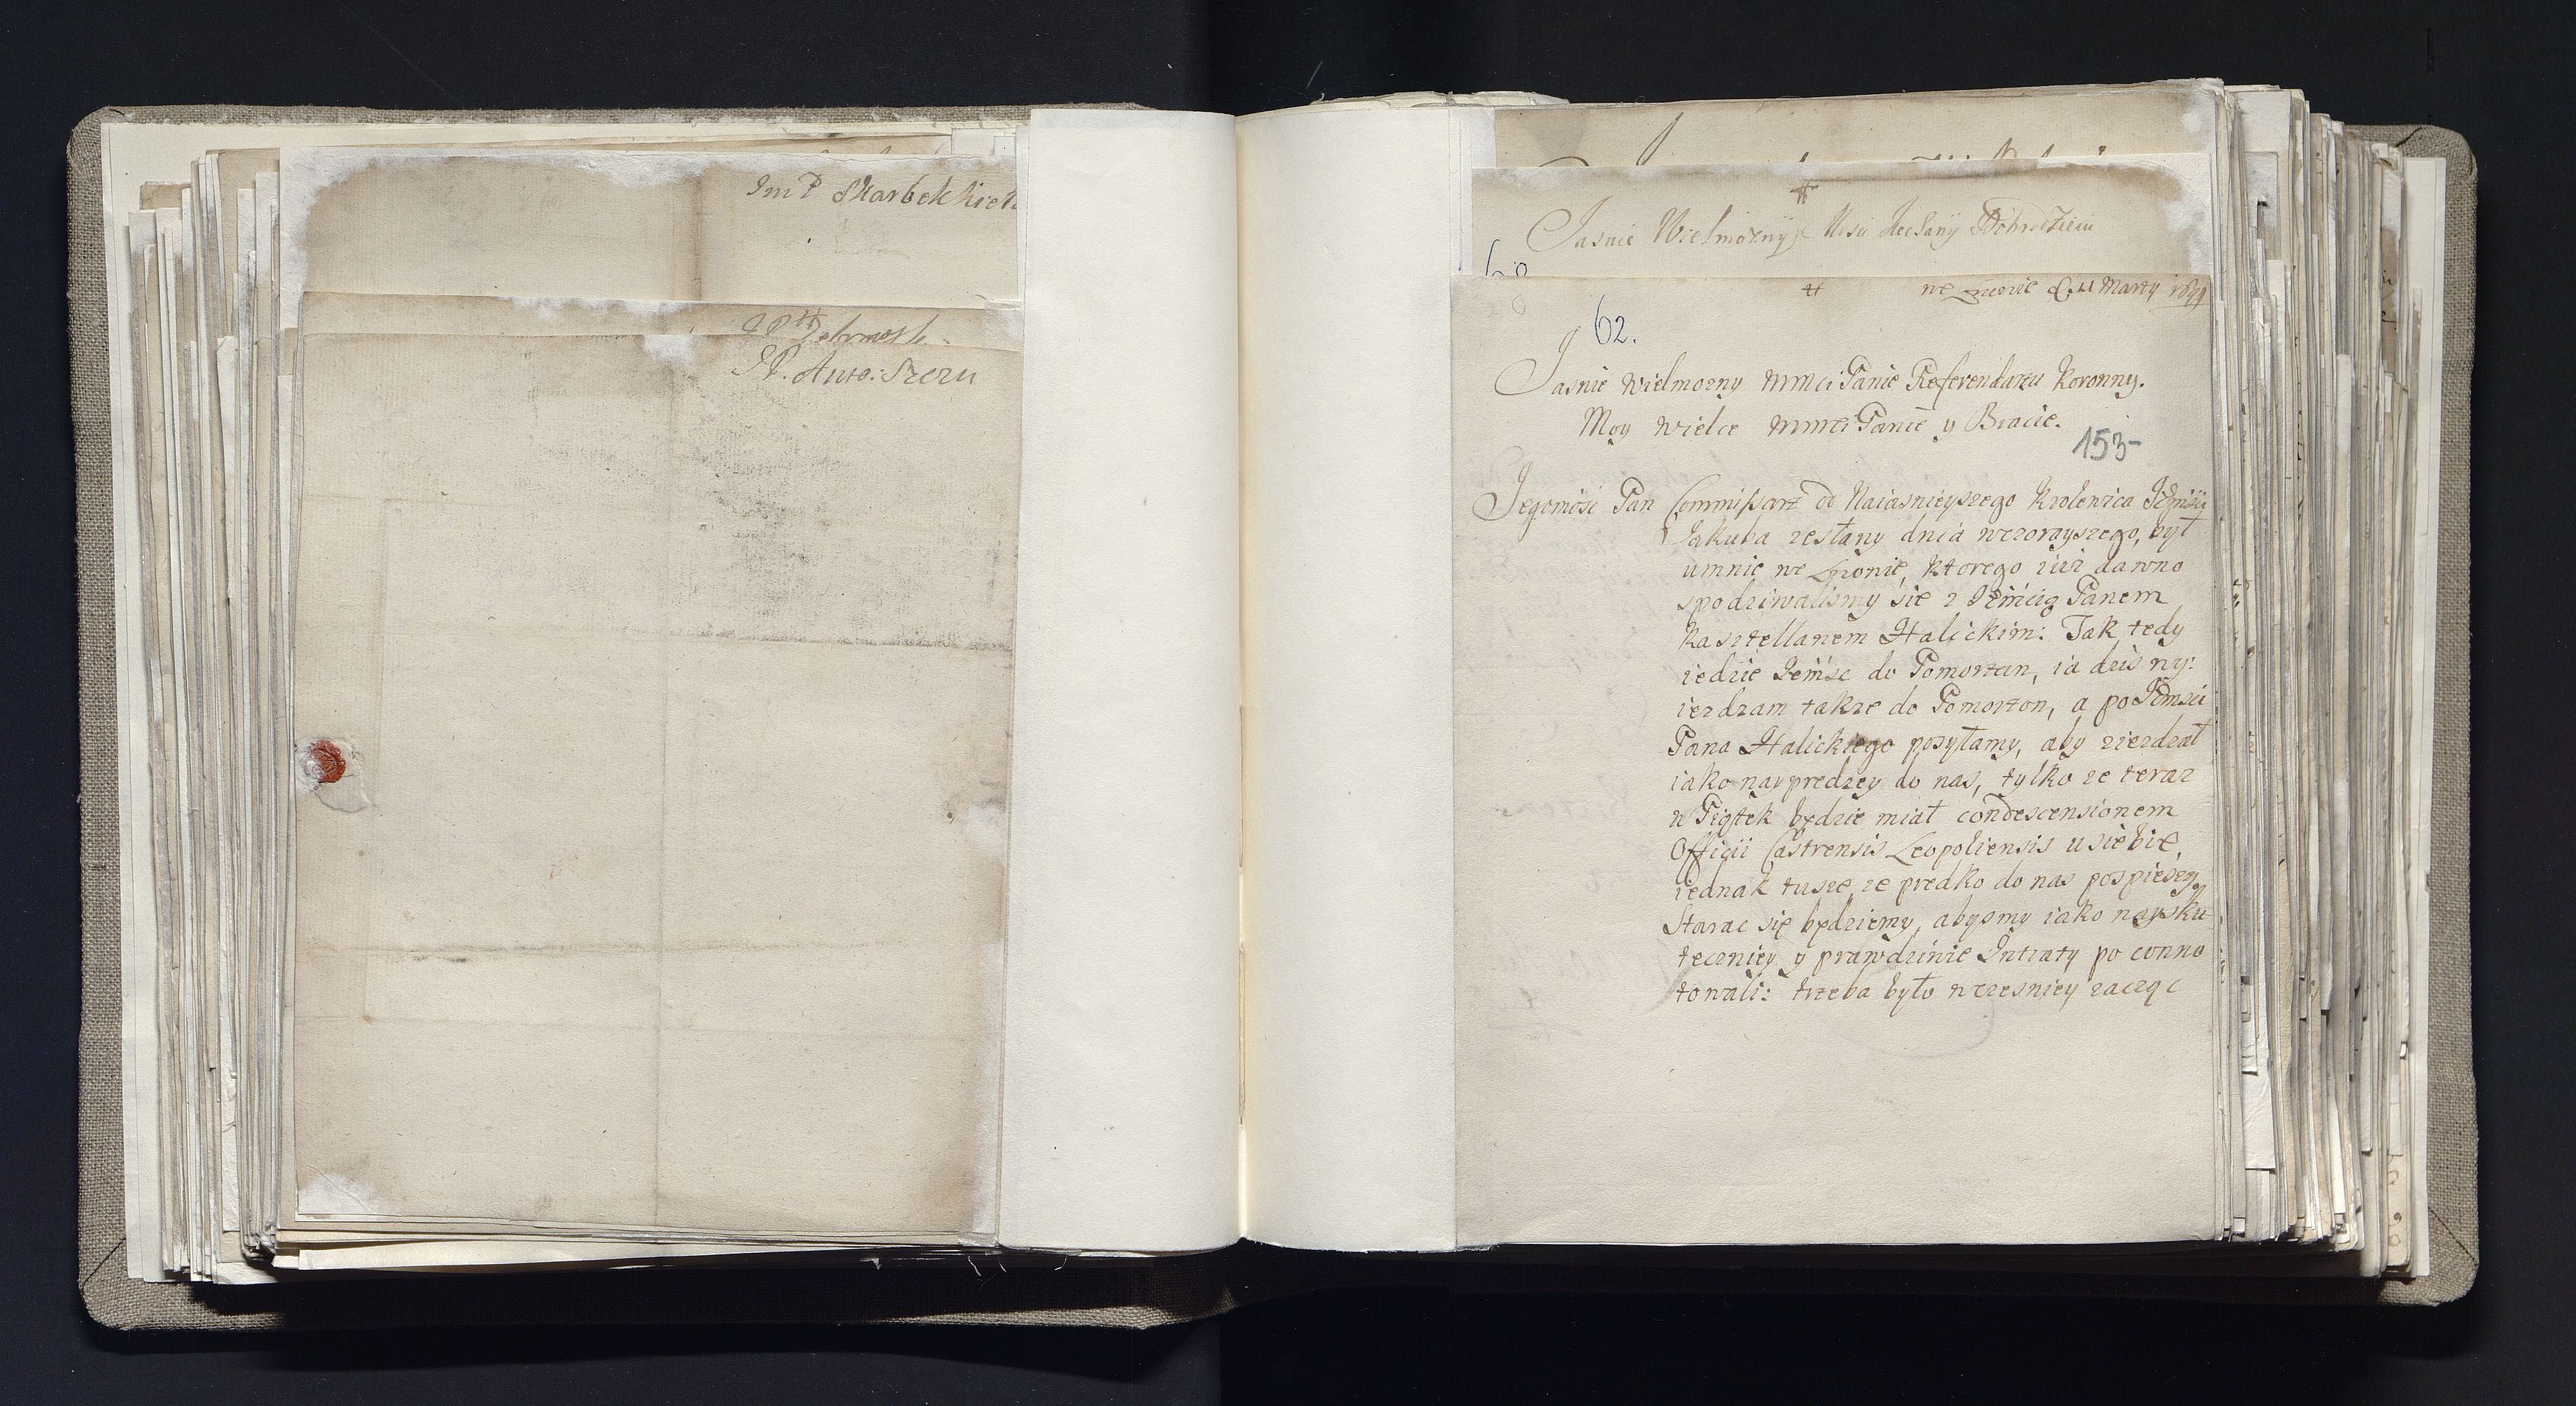 Im P Skarbek Kie
JP. Anto: Szczu
Jasnie Wielmozny Mści Dobrodzieiu
we Lwowie 11 Marty
62.
Jasnie Wielmozny MMci Panie Referendarzu Koronny.
Moy wielce MMci Panie y Bracie.
153
Jegomość Pan Commissarz od Naiasnieyszego Krolewica Jegmści
Jakuba zesłany dnia wczorayszego, był
umnie we Lwowie, ktorego iuz dawno
spodziwalismy sie z Jemcią Panem
Kasztellanem Halickim: Tak tedy
iedzie Jemsc do Pomorzan, ia dzis wy:
iezdzam takze do Pomorzon, a po Jemsci
Pana Halickiego posyłamy, aby ziezdzał
iako nayprędzey do nas, tylko ze teraz
w Piątek będzie miał condescensionem
Officii Castrensis Leopoliensis usiebie,
iednak tusze, ze predko do nas pospieszy
Starac się będziemy, abysmy iako naysku
teczniey y prawdziwie Intraty po conno
towali: trzeba było wczesniey zacząc